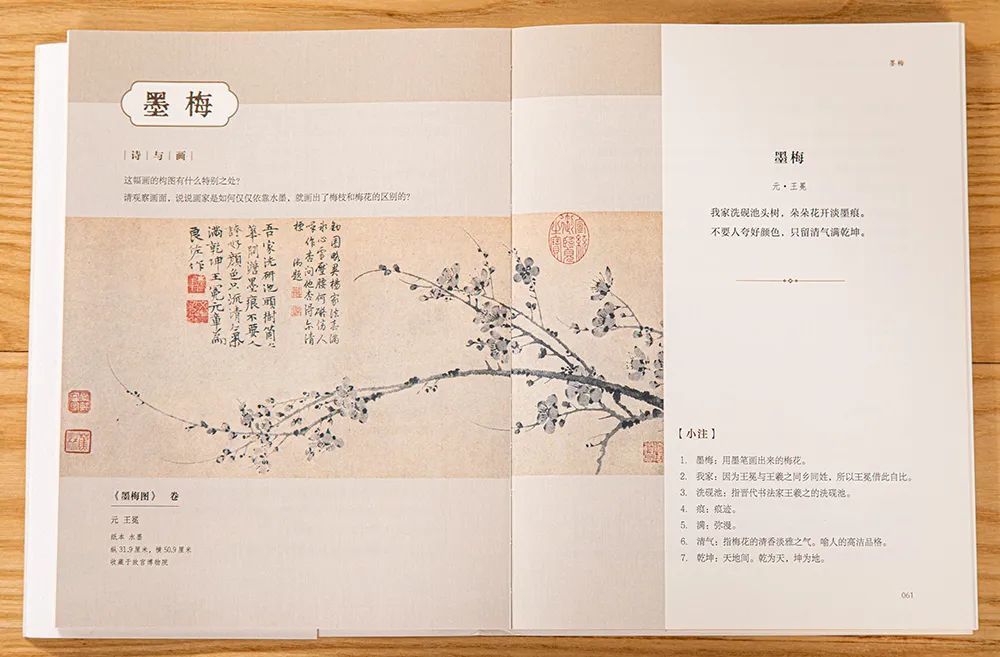 墨梅
诗与画
这幅画的构图有什么特别之处?
请观察画面，说说画家是如何仅仅依靠水墨，就画出了梅枝和梅花的区别的?
吾家洗研池頭樹箇箇
華開澹墨痕不要人
誇好顏色只流清氣
滿乾坤王冕元章為
良佐作
《墨梅图》 卷
元 王冕
纸本 水墨
纵 31.9 厘米，横 50.9 厘米
收藏于故宫博物院
墨梅
墨梅
元·王冕
我家洗砚池头树，朵朵花开淡墨痕。
不要人夸好颜色，只留清气满乾坤。
【小注】
1. 墨梅：用墨笔画出来的梅花。
2. 我家：因为王冕与王羲之同乡同姓，所以王冕借此自比。
3. 洗砚池：指晋代书法家王羲之的洗砚池。
4. 痕：痕迹。
5. 满：弥漫。
6. 清气：指梅花的清香淡雅之气。喻人的高洁品格。
7. 乾坤：天地间。乾为天，坤为地。
061